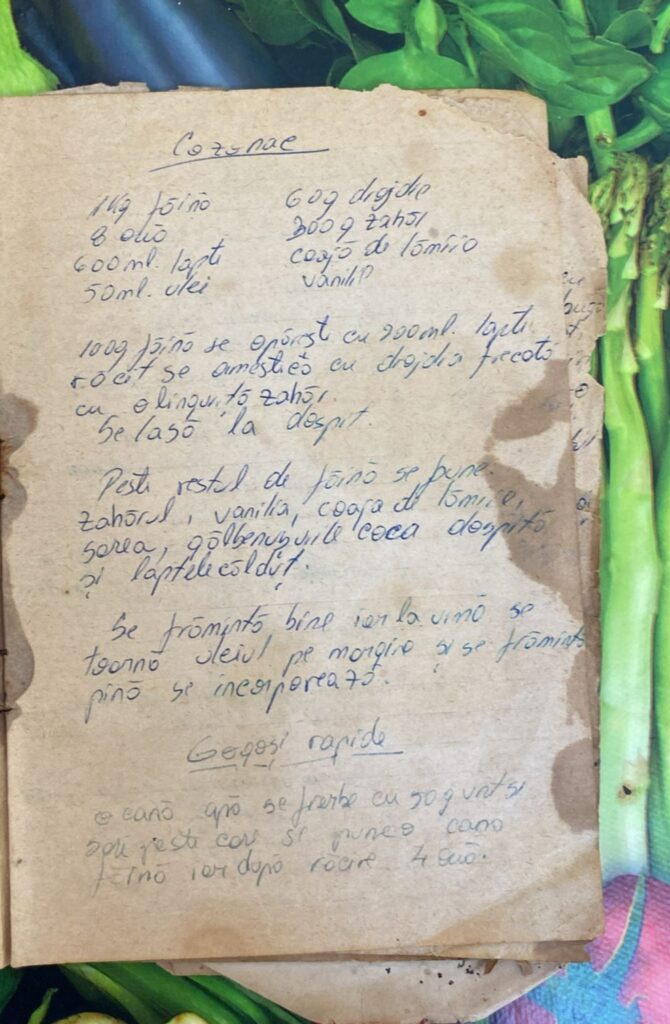 Cozonac
1Kg făină 60g drojdie
8 ouă 300g zahăr
600ml. lapte coajă de lămîie
50ml. ulei vanilie
100g făină se opărește cu 200ml. lapte
răcit se amestică cu drojdia frecată
cu o linguriță zahăr.
Se lasă la dospit.
Peste restul de făină se pune.
zahărul, vanilia, coaja de lămîie,
sarea, gălbenușurile coca dospită
și laptele căldуț.
Se frămintă bine iar la urmă se
toarnă uleiul pe margine și se frămintă
pină se incorporează.
Gogoși rapide
o cană apă se fierbe cu 50g unt și
sare peste care se pune o cană
făină iar după răcire 4 ouă.